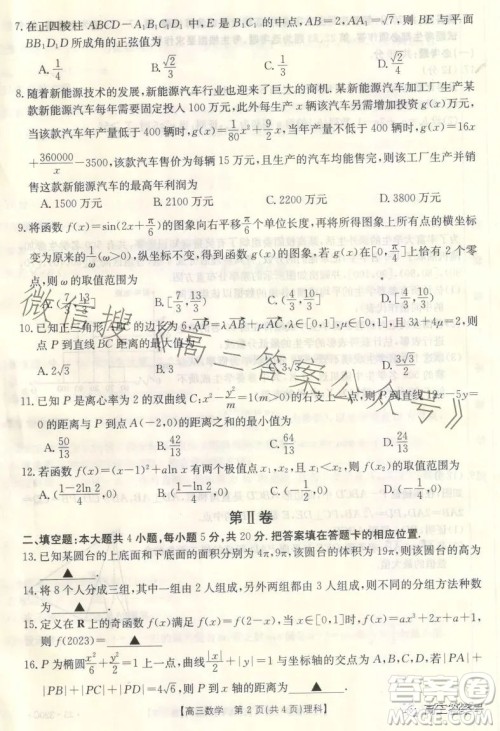 7. 在正四棱柱 ABCD-A₁B₁C₁D₁ 中, E 是 B₁C₁ 的中点, AA₁=2AB=√7, 则 BE 与平面
BB₁D₁D 所成角的正弦值为
A. 1/4 B. √2/3 C. √3/6 D. √2/8
8. 随着新能源技术的发展, 新能源汽车行业也迎来了巨大的商机. 某新能源汽车加工厂生产某
款新能源汽车每年需要固定投入 100 万元, 此外每生产 x 辆该汽车另需增加投资 g(x) 万元.
当该款汽车年产量低于 400 辆时, g(x)=1/80 x²+9x, 当年产量不低于 400 辆时, g(x)=16x
+360000/x-3500, 该款汽车售价为每辆 15 万元, 且生产的汽车均能售完, 则该工厂生产并销
售这款新能源汽车的最高年利润为
A. 1500 万元 B. 2100 万元 C. 2200 万元 D. 3800 万元
9. 将函数 f(x)=sin(2x+π/6) 的图象向右平移 π/6 个单位长度, 再将所得图象上所有点的横坐标
变为原来的 1/ω (ω>0), 纵坐标不变, 得到函数 g(x) 的图象. 若 g(x) 在 [0,π/4] 上恰有 2 个零
点, 则 ω 的取值范围为
(7/3,13/3] B. [7/3,13/3) C. (4/3,10/3] D. [4/3,10/3)
10. 已知正三角形 ABC 的边长为 6,
点 P 到直线 BC 距离的最大值为
A. 2√3 B. 3 C. √3 D. 3√3/2
11. 已知 P 是离心率为 2 的双曲线
A. 50/13 B. 24/13 C. 64/13 D.
12. 若函数 f(x)=(x-1)²+aln x 有两个极值点 x₁, x₂, 且 x₁<x₂, 则 f(x₂) 的取值范围为
A. (1-2ln 2/4,0) B. (-∞,1-2ln 2/4) C.
第Ⅱ卷
二、填空题: 本大题共 4 小题, 每小题 5 分, 共 20 分. 把答案填在答题卡的相应位置.
13. 已知某圆台的上底面和下底面的面积分别为 4π, 9π, 该圆台的体积为 19π, 则该圆台的高
为 ▲ .
14. 将 8 个人分成三组, 其中一组由 2 人组成, 另外两组都由 3 人组成, 则不同的分组方法种数
为 ▲ .
15. 定义在 R 上的奇函数 f(x) 满足 f(x)=f(2-x), 且当 x∈[-1,0] 时, f(x)=ax³+2x+a+1,
则 f(2023)= ▲ .
16. P 为椭圆 x²/6+y²/2=1 上一点,
|PA|+|PC|=|PB|+|PD|=2√6, 则 |PA|+|PB|+|PC|+|PD|= ▲
【高三数学 第 2 页(共 4 页)理科】
微信搜《高三答案公众号》